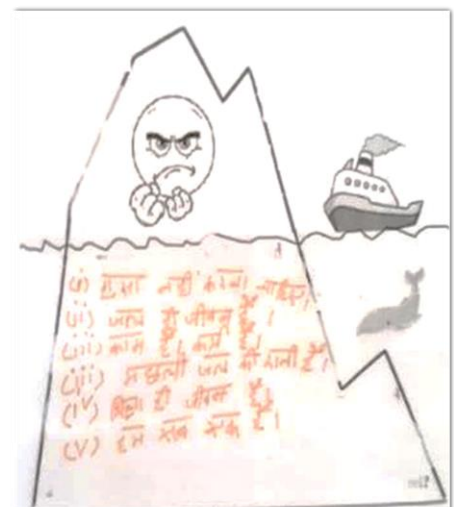 (i) गुस्सा नहीं करना चाहिए।
(ii) जल ही जीवन है।
(iii) काम ही कर्म है।
(iii) मछली जल की रानी है।
(iv) शिक्षा ही जीवन है।
(v) हम सब एक हैं।